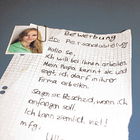 Bewerbung
an Personalabteilung
Hallo Sie,
ich will bei ihnen arbeiten.
Mein Papa kennt sie und
sagt, ich darf in ihrer
Firma arbeiten.
Sagen sie bescheid, wenn ich
anfangen soll.
Ich kann ziemlich viel!
mfg.